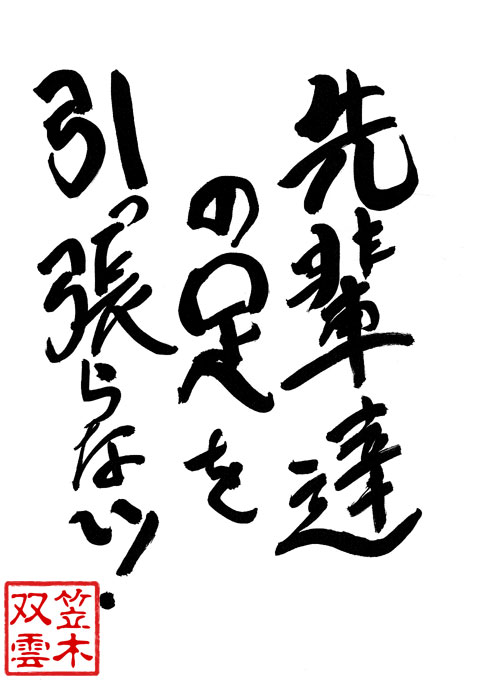 先輩達
の足を
引っ張らない！
笠木
双雲